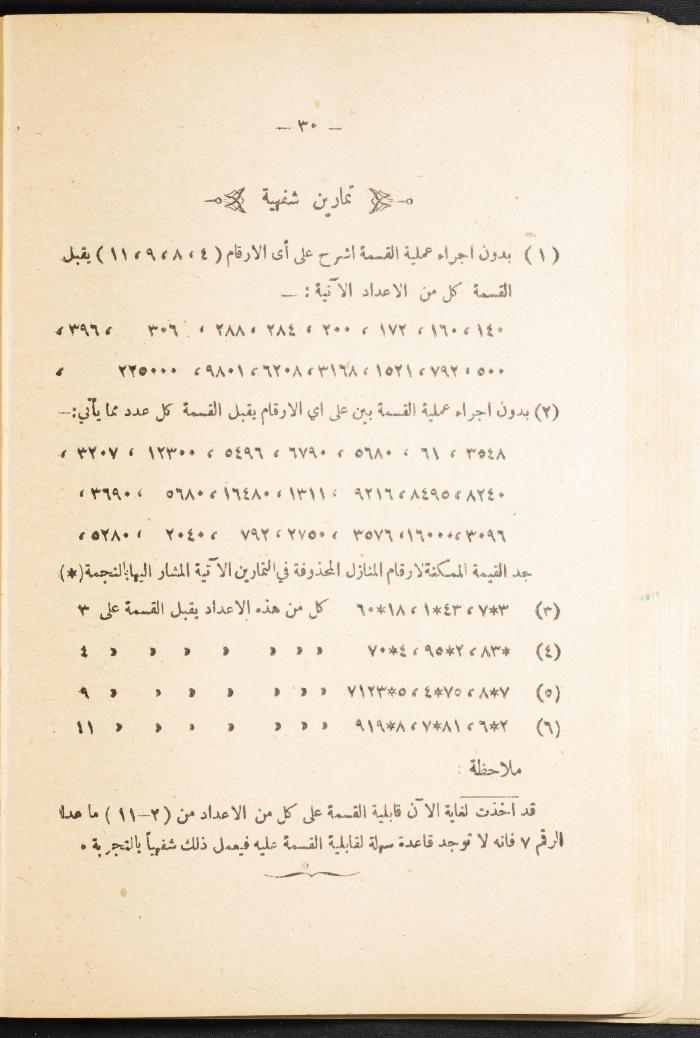 — ٣٠ —
تمارين شفهية
(١) بدون اجراء عملية القسمة اشرح على أى الارقام (٤،٨،٩،١١) يقبل
القسمة كل من الاعداد الآتية : —
١٤٠ ، ١٦٠ ، ١٧٢ ، ٢٠٠ ، ٢٨٤ ، ٢٨٨ ، ٣٠٦ ، ٣٩٦ ،
٥٠٠ ، ٧٩٢ ، ١٥٢١ ، ٣١٦٨ ، ٦٢٠٨ ، ٩٨٠١ ، ٢٢٥٠٠٠ ،
(٢) بدون اجراء عملية القسمة بين على اي الارقام يقبل القسمة كل عدد مما يأتي:—
٣٥٤٨ ، ٦١ ، ٥٦٨٠ ، ٦٧٩٠ ، ٥٤٩٦ ، ١٢٣٠٠ ، ٣٢٠٧ ،
٨٢٤٠ ، ٨٤٩٥ ، ٩٢١٦ ، ١٣١١ ، ١٦٤٨٠ ، ٥٦٨٠ ، ٣٦٩٠ ،
٣٠٩٦ ، ١٦٠٠٠ ، ٣٥٧٦ ، ٢٧٥٠ ، ٧٩٢ ، ٢٠٤٠ ، ٥٢٨٠ ،
جد القيمة الممكنة لارقام المنازل المحذوفة في التمارين الآتية المشار اليها بالنجمة (*)
(٣) ٣*٧ ، ٤٣*١ ، ١٨*٦٠ كل من هذه الاعداد يقبل القسمة على ٣
(٤) *٨٣ ، ٢*٩٥ ، ٤*٧٠ » » » » » » » ٤
(٥) ٧*٨ ، ٧٥*٤ ، ٥*٧١٢٣ » » » » » » » ٩
(٦) ٢*٦ ، ٨١*٧ ، ٨*٩١٩ » » » » » » » ١١
ملاحظة :
قد اخذت لغاية الآن قابلية القسمة على كل من الاعداد من (٢–١١) ما عدا
الرقم ٧ فانه لا توجد قاعدة سهلة لقابلية القسمة عليه فيعمل ذلك شفهياً بالتجربة .